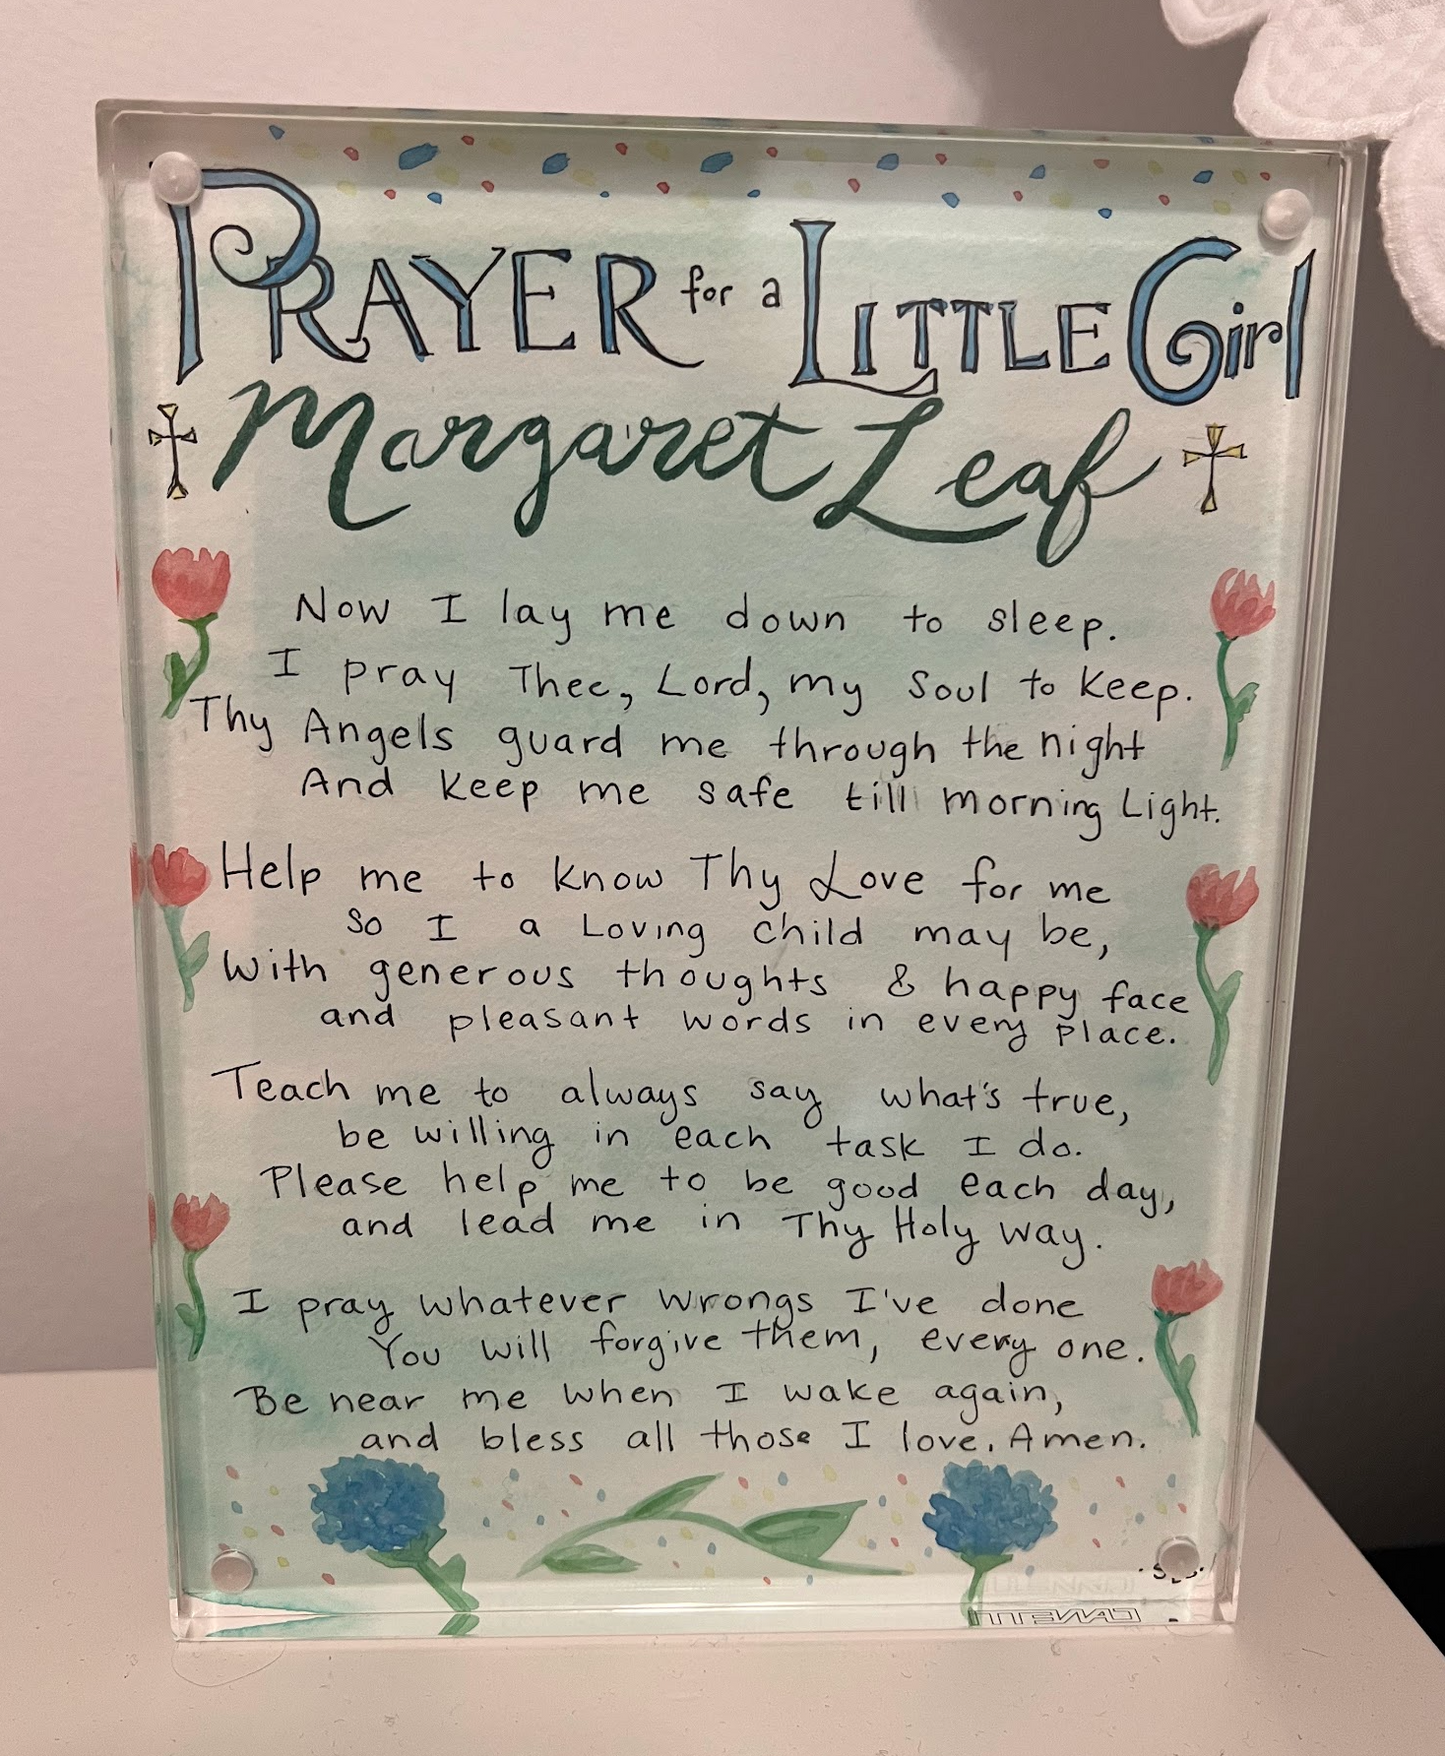 PRAYER for a LITTLE Girl
Margaret Leaf
Now I lay me down to sleep.
I pray Thee, Lord, my Soul to keep.
Thy Angels guard me through the night
And keep me safe till morning Light.
Help me to know Thy Love for me
so I a Loving child may be,
With generous thoughts & happy face
and pleasant words in every place.
Teach me to always say what's true,
be willing in each task I do.
Please help me to be good each day,
and lead me in Thy Holy way.
I pray whatever wrongs I've done
You will forgive them, every one.
Be near me when I wake again,
and bless all those I love. Amen.